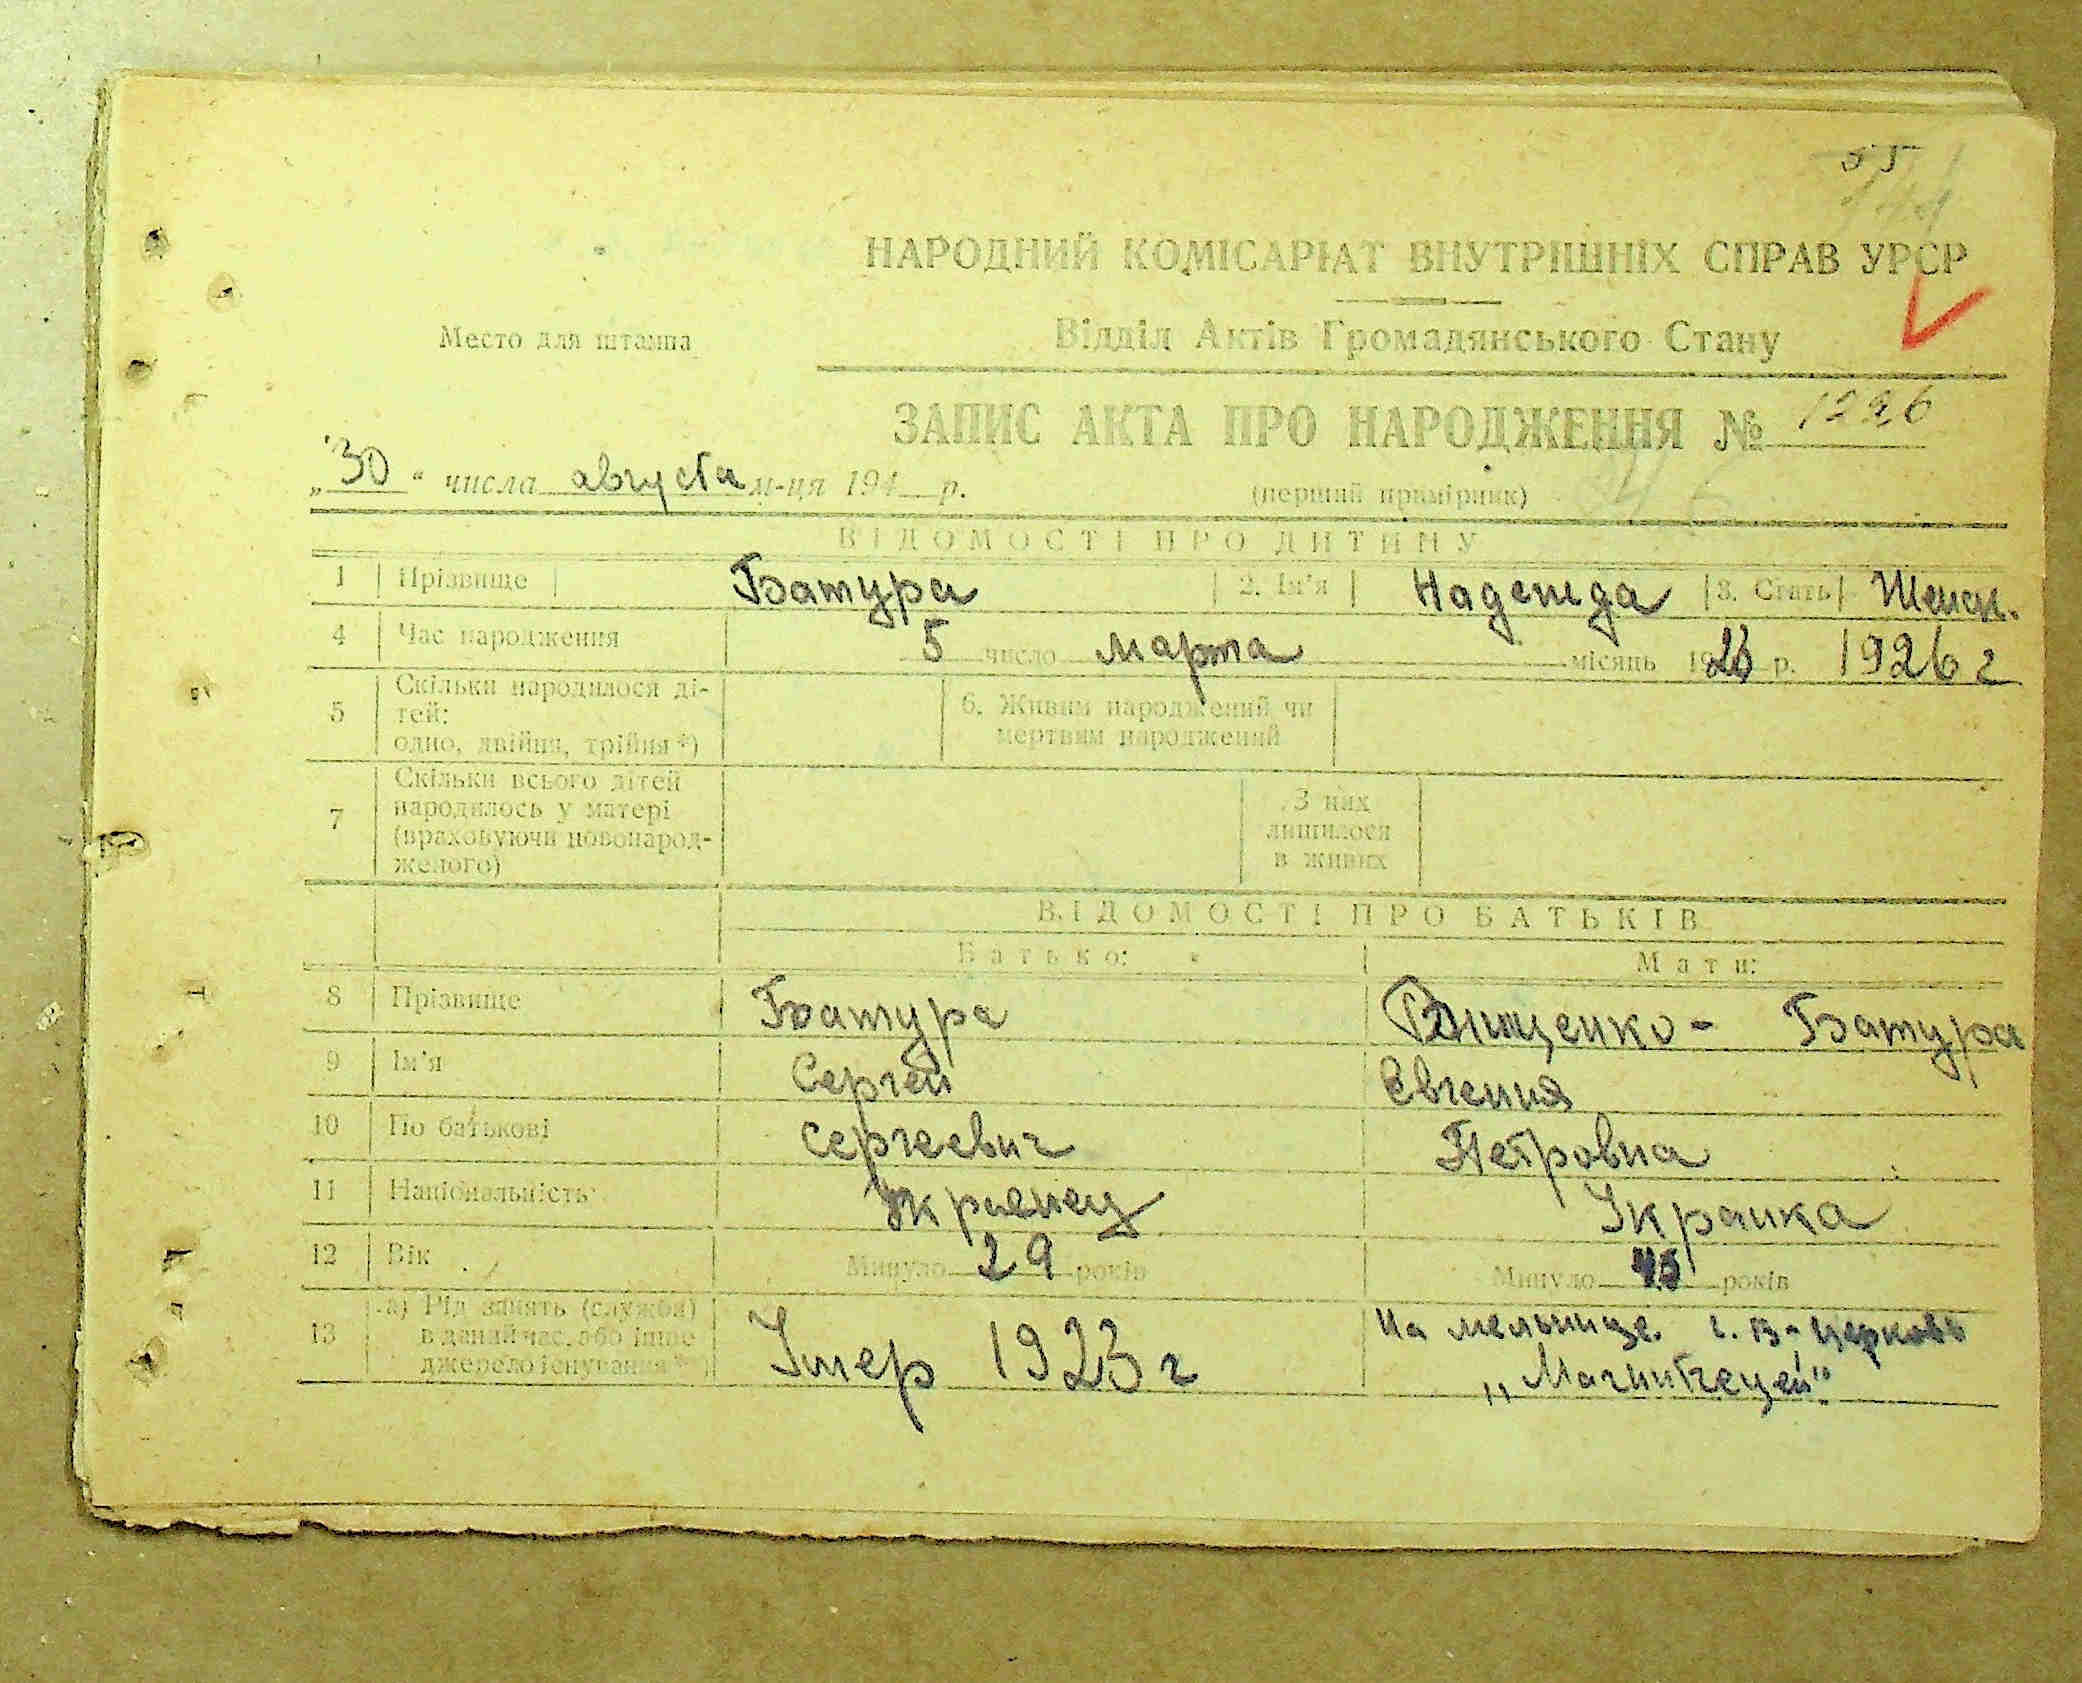 55
НАРОДНИЙ КОМІСАРІАТ ВНУТРІШНІХ СПРАВ УРСР
Место для штампа
Відділ Актів Громадянського Стану
ЗАПИС АКТА ПРО НАРОДЖЕННЯ № 1226
„30“ числа августа м-ця 194 р.
(перший примірник)
ВІДОМОСТІ ПРО ДИТИНУ
1 Прізвище Батура 2. Ім'я Надежда 3. Стать Женск.
4 Час народження 5 число марта місяць 1926 р. 1926 г
5 Скільки народилося ді-
тей:
одно, двійня, трійня*)
6. Живим народжений чи
мертвим народжений
7 Скільки всього дітей
народилось у матері
(враховуючи новонарод-
женого)
З них
лишилося
в живих
ВІДОМОСТІ ПРО БАТЬКІВ
Батько: Мати:
8 Прізвище Батура Онищенко - Батура
9 Ім'я Сергей Евгения
10 По батькові Сергеевич Петровна
11 Національність Украенец Украинка
12 Вік Минуло 29 років Минуло років
13 а) Рід занять (служба)
в даний час, або інше
джерело існування*)
Умер 1923 г
На мельнице г. В-Церковь